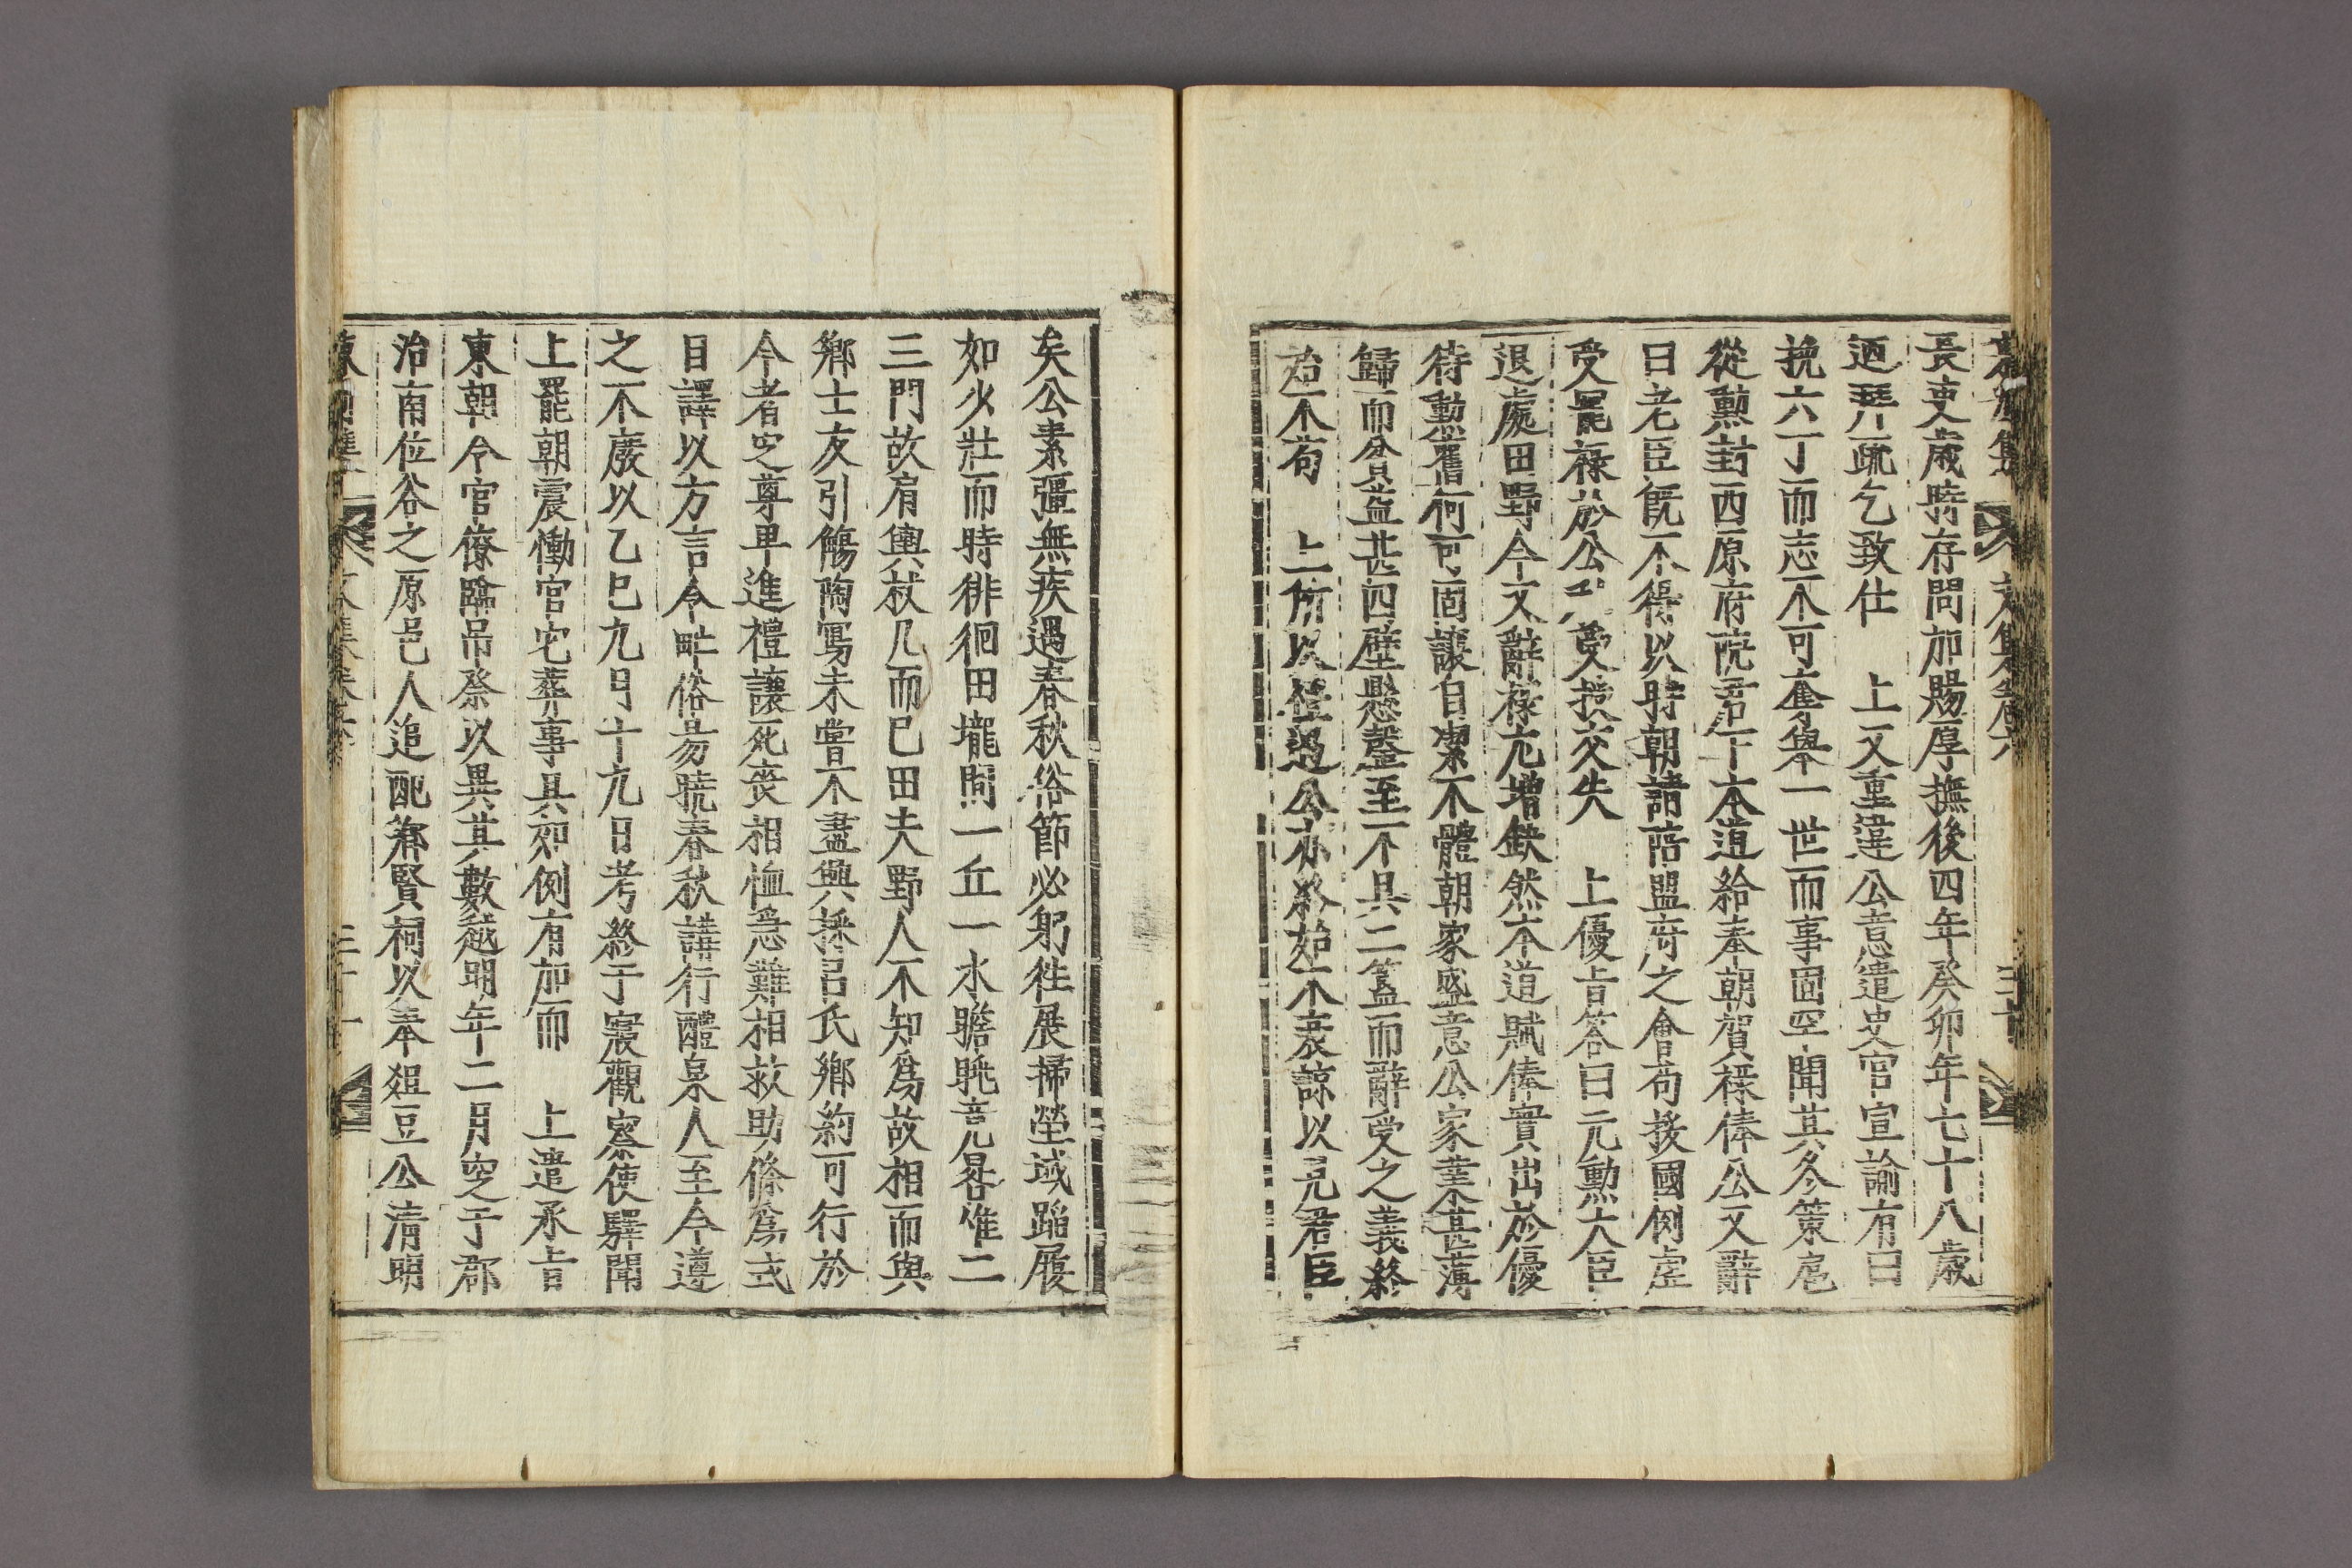 長吏歲時存問加賜厚撫後四年癸卯年七十八歲
迺拜疏乞致仕 上又重違公意遣史官宣諭有曰
挽六丁而志不可奪舉一世而事固罕聞其冬策扈
從勳封西原府院君下本道給奉朝賀祿俸公又辭
曰老臣旣不得以時朝請陪盟府之會苟援國例虛
受罷祿於公 受授交失 上優旨答曰元勳大臣
退處田野今又辭祿尤增缺然本道賦俸實出於優
待勳舊何可固讓自潔不體朝家盛意公家業甚薄
歸而食貧益甚四壁懸磬至不具二簋而辭受之義終
始不苟 上所以 遇公亦終始不衰諒以見君臣
矣公素彊無疾遇春秋俗節必躬徃展掃塋域蹈履
如少壯而時徘徊田壠間一丘一水瞻眺竟晷惟二
三門故肩輿杖几而已田夫野人不知爲故相而與
鄕士友引觴陶寫未甞不盡興採呂氏鄕約可行於
今者定尊卑進禮讓死喪相恤急難相救助條爲式
目譯以方言令甿俗昜曉春秋講行醴泉人至今遵
之不廢以乙巳九月十九日考終于寢觀察使驛聞
上罷朝震慟官庀葬事具如例有加而 上遣承旨
東朝令官僚臨吊祭以異其數越明年二月窆于郡
治南位谷之原邑人追配鄕賢祠以奉俎豆公淸明